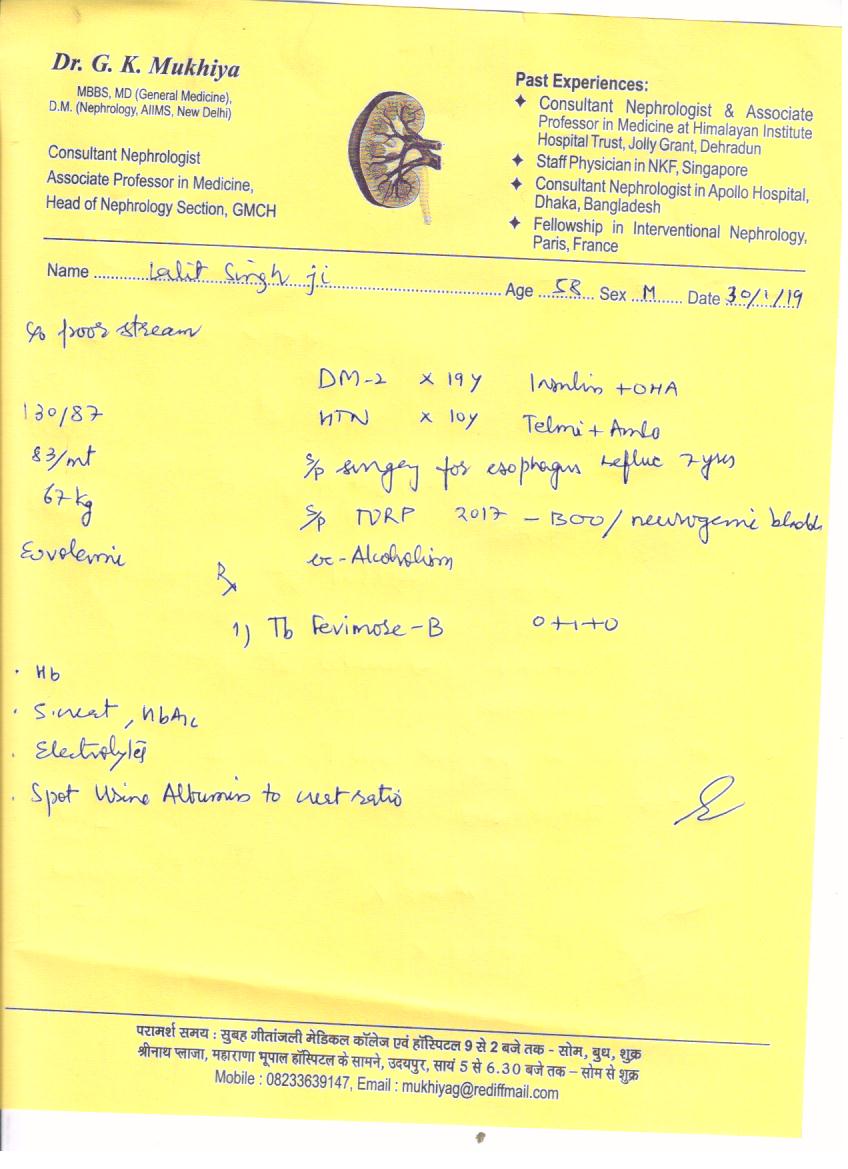 Dr. G. K. Mukhiya
MBBS, MD (General Medicine),
D.M. (Nephrology, AIIMS, New Delhi)
Consultant Nephrologist
Associate Professor in Medicine,
Head of Nephrology Section, GMCH
Past Experiences:
✦ Consultant Nephrologist & Associate
Professor in Medicine at Himalayan Institute
Hospital Trust, Jolly Grant, Dehradun
✦ Staff Physician in NKF, Singapore
✦ Consultant Nephrologist in Apollo Hospital,
Dhaka, Bangladesh
✦ Fellowship in Interventional Nephrology,
Paris, France
Name Lalit Singh ji Age 58 Sex M Date 30/1/19
c/o poor stream
DM-2 x 19y Insulin + OHA
130/87 HTN x 10y Telmi + Amlo
83/mt s/p surgey for esophagus refluc 7 yrs
67 kg s/p TURP 2017 - BOO/neurogenic bladde
Euvolemic ex-Alcoholism
Rx
1) Tb Fevimose-B 0+1+0
. Hb
. S.creat, HbA1c
. Electrolytes
. Spot Urine Albumin to creat ratio
परामर्श समय : सुबह गीतांजली मेडिकल कॉलेज एवं हॉस्पिटल 9 से 2 बजे तक - सोम, बुध, शुक्र
श्रीनाथ प्लाजा, महाराणा भूपाल हॉस्पिटल के सामने, उदयपुर, सायं 5 से 6.30 बजे तक – सोम से शुक्र
Mobile : 08233639147, Email : mukhiyag@rediffmail.com